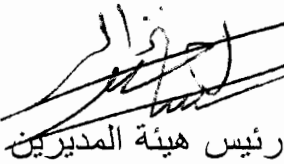 رئيس هيئة المديرين